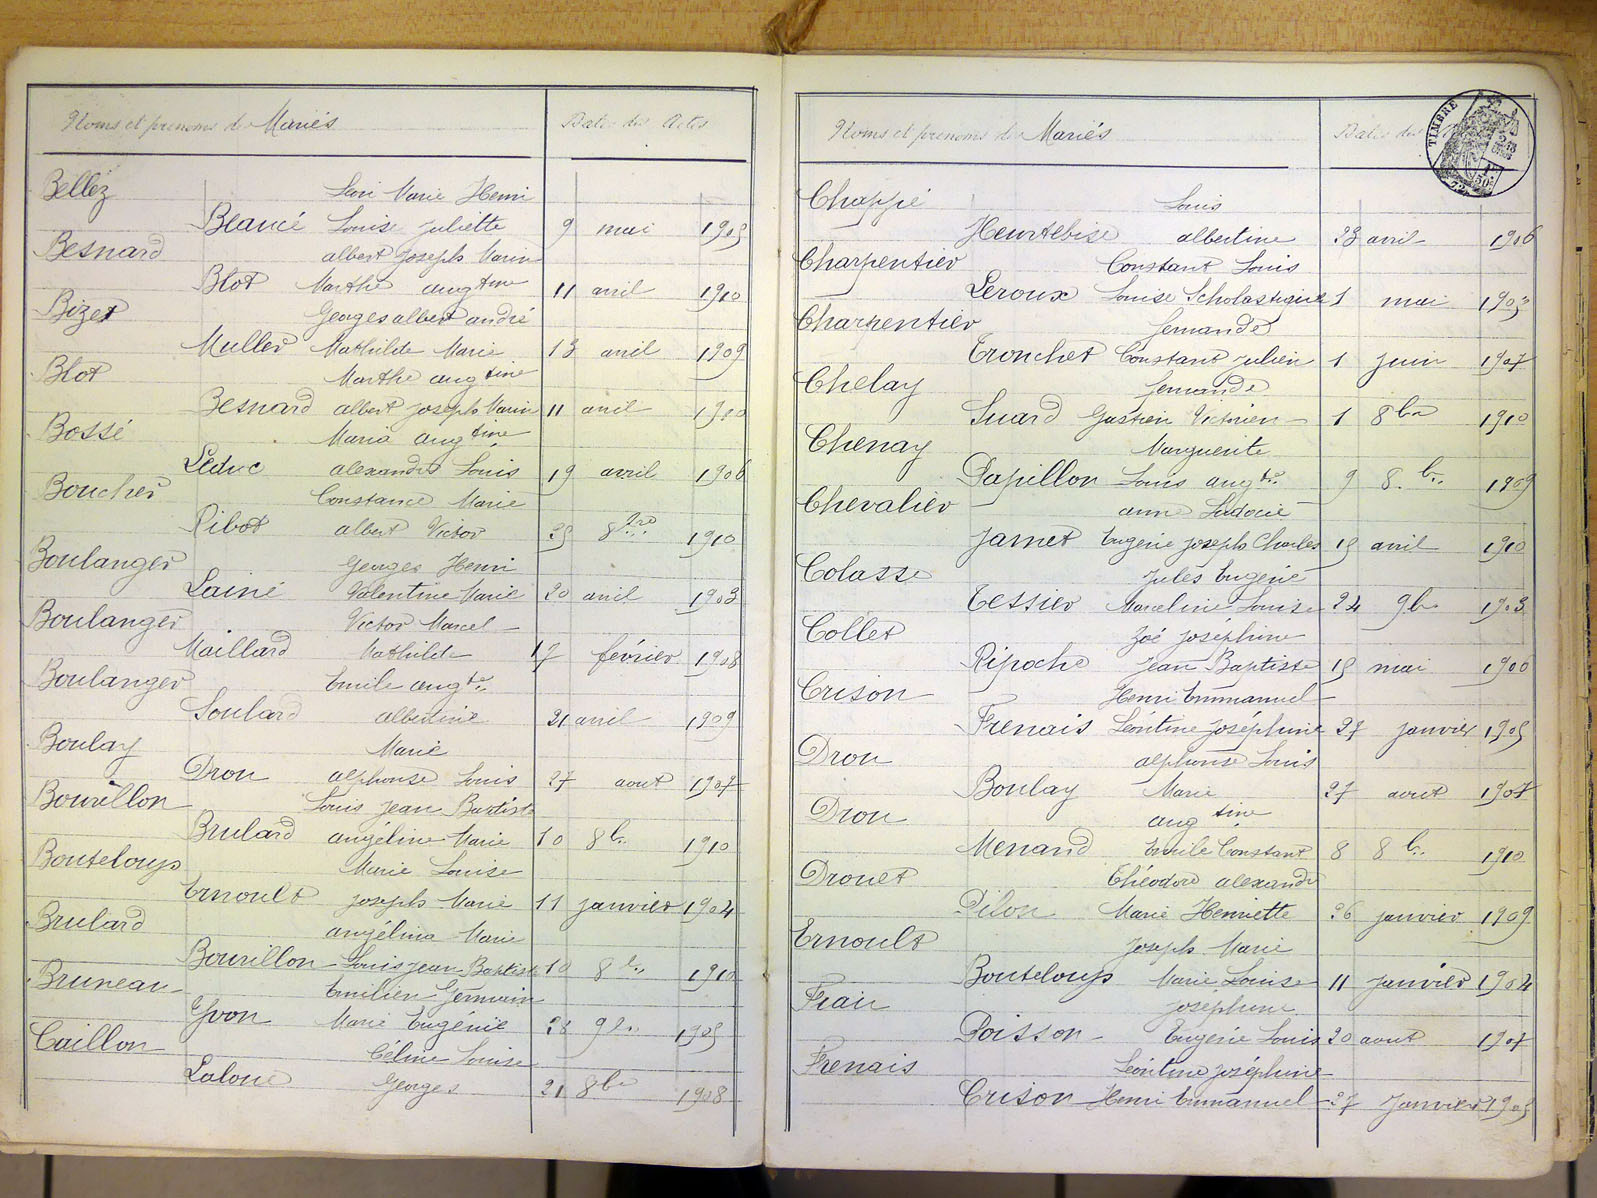 Noms et prénoms de Mariés
Dates des Actes
Bellez Marie Henri
Beancé Louise Juliette 9 mai 1905
Besnard albert Joseph Marin
Blot Marthe aug tine 11 avril 1910
Bizet Georges albert andré
Muller Mathilde Marie 13 avril 1909
Blot Marthe aug tine
Besnard albert Joseph Marin 11 avril 1910
Bossé Maria aug tine
Leduc alexandre Louis 19 avril 1906
Boucher Constance Marie
Ribot albert Victor 25 8bre 1910
Boulanger Georges Henri
Lainé Valentine Marie 20 avril 1903
Boulanger Victor Marcel
Maillard Mathilde 17 février 1908
Boulanger Emile aug te
Soulard albertine 21 avril 1909
Boulay Marie
Dron alphonse Louis 27 aout 1907
Bourillon Louis Jean Baptiste
Brulard angéline Marie 10 8b. 1910
Bouteloup Marie Louise
Ernoult Joseph Marie 11 janvier 1904
Brulard angélina Marie
Bourillon Louis Jean Baptiste 10 8b. 1910
Bruneau Emilien Germain
Yvon Marie Eugénie 28 9b. 1905
Caillon Céline Louise
Laloue Georges 21 8br 1908
Noms et prénoms de Mariés
Dates des
TIMBRE
Chappé Louis
Heurtebise albertine 23 avril 1906
Charpentier Constant Louis
Leroux Louise Scholastique 1 mai 1903
Charpentier fernande
Tronchet Constant Julien 1 juin 1907
Chelay fernande
Suard Gastien Victorien 1 8br 1910
Chenay Marguerite
Papillon Louis aug te 9 8 b. 1909
Chevalier anne Ladocie
Jamet Eugène Joseph Charles 15 avril 1910
Colasse Jules Eugène
Tessier Marceline Louise 24 9b. 1903
Collet Zoé Joséphine
Ripoche Jean Baptiste 15 mai 1906
Crison Henri Emmanuel
Frenais Léontine Joséphine 27 janvier 1905
Dron alphonse Louis
Boulay Marie 27 aout 1907
Dron aug tine
Menand Emile Constant 8 8b. 1910
Drouet Théodore alexandre
Pilon Marie Henriette 26 janvier 1909
Ernoult Joseph Marie
Bouteloup Marie Louise 11 janvier 1904
Frain Joséphine
Poisson Eugène Louis 20 aout 1907
Frenais Léontine Joséphine
Crison Henri Emmanuel 27 Janvier 1905